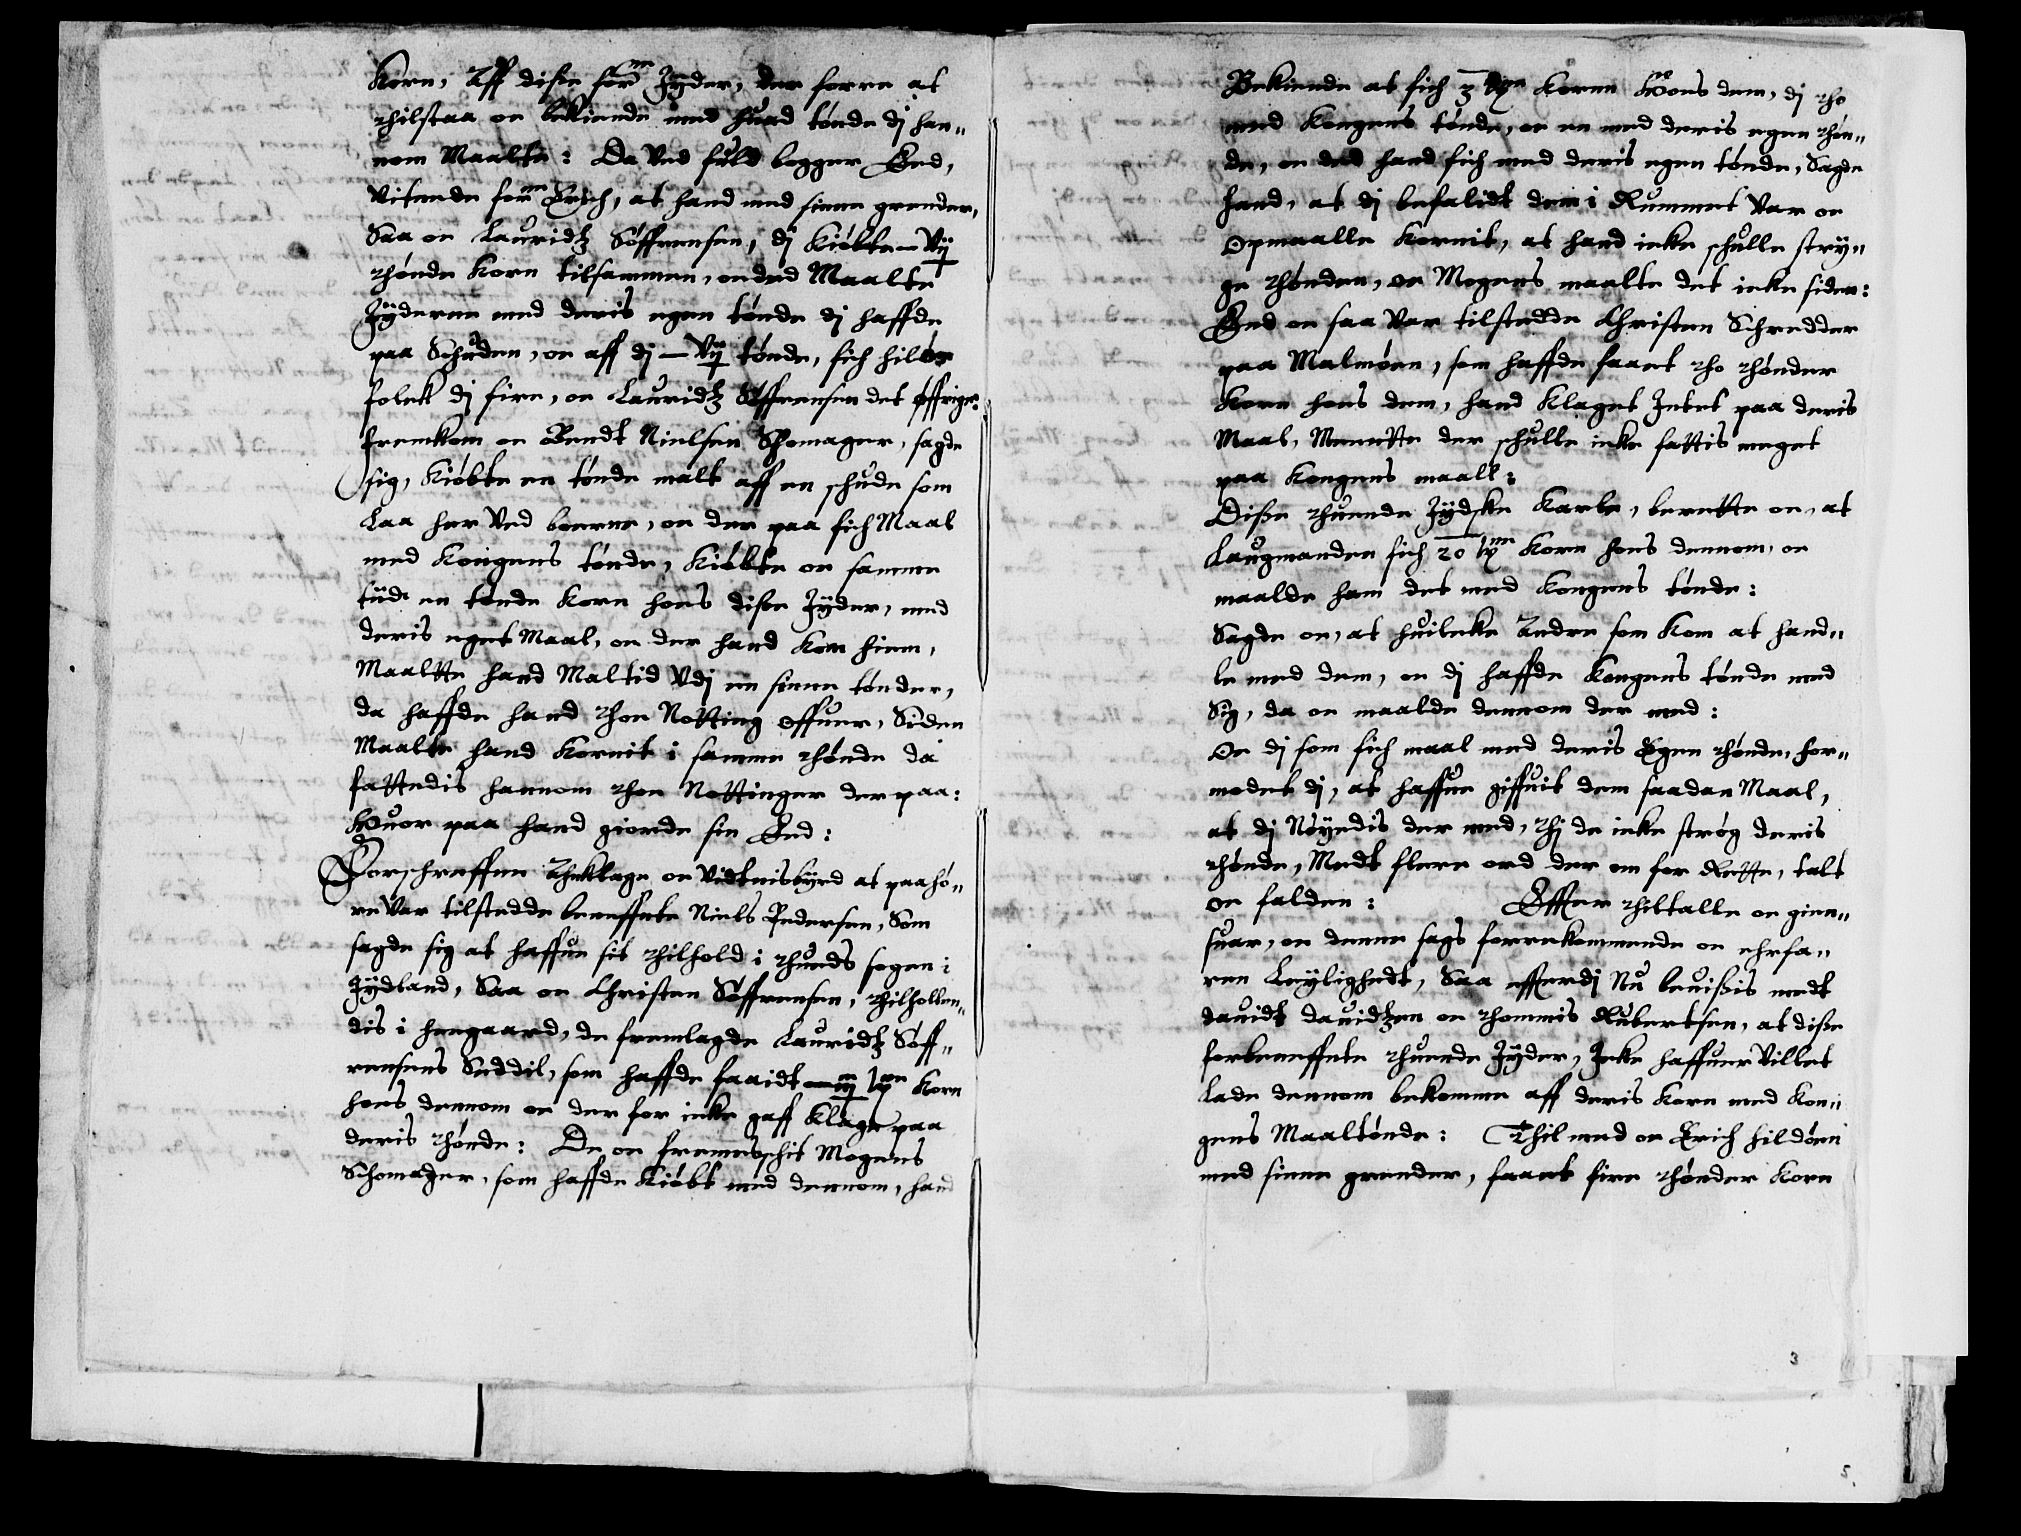 Korn, Aff disse forne Jÿder, der forre at
thilstaa oc bekiende med huad tønde dj han„
nom Maalte: Da Ved fuld bogger Eed,
Vitende forne Erich, at hand med sinne grender,
Saa oc Lauridtz Søffrensen, dj kiøbte Vij
thønde Korn tilsammen, oc ded Maalte
Jÿderne med deris egen tønde dj haffde
paa Schuden, oc aff dj Vij tønde, fich hildør
folck dj fire, oc Lauridtz Søffrensen det øffrige:
fremkom oc Bendt Nielsen Skomager, sagde
sig, kiøbte en tønde malt aff en schude som
Laa her Ved broenn, oc der paa fich Maal
med Kongens tønde, kiøbte oc samme
tiid en tønde Korn hos disse Jÿder, med
deris eget Maal, oc der hand kom hiem,
Maaltte hand Maltid Vdj en sinne tønder,
da haffde hand thou Notting offuer, Siden
Maalte hand Kornit i samme thønde da
fattedis hannom thou Nottinger der paa:
Huor paa hand giorde sin Eed:
Forschreffne Theklage oc Vidtnisbÿrd at paahø„
re Var tilstedde beneffnte Niels Pedersen, Som
sagde sig at haffue sit thilhold i thueds sogen i
Jÿdland, Saa oc Christen Søffrensen, thilhollen„
dis i hougaard, de fremlagde Lauridtz Søff„
rensens Seddil, som haffde faaidt iij tÿnr Korn
hos dennom oc der for inke gaff klage paa
deris thønde: De oc fremesschit Mogens
Schomager, som haffde kiøbt med dennom, hand
Bekiende at fich 3 tÿnr Korn Hoes dem, dj tho
med Kongens tønde, oc en med deris egen thøn„
de, oc ded hand fich med deris egen tønde, Sagde
hand, at dj befalidt dem i Rummet Var oc
opmaalle Kornit, at hand inke schulle strÿ„
ge thønden, oc Mogens maalte det inke siden:
End oc saa Var tilstedde Christen Schredder
paa Malmøen, som haffde faaet tho thønder
Korn hoes dem, hand klaget Intet paa deris
Maal, Menntte der schulle inke fattis meget
paa Kongens maall:
Disse thuende Jÿdske Karle, berette oc, at
Laugmanden fich 20 tÿnr Korn hoes dennom, oc
maalde ham det med Kongens tønde:
Sagde oc, at huilcke Andre som kom at hand„
le med dem, oc dj haffde Kongens tønde med
Sig, da oc maalde dennom der med:
Oc dj som fich maal med deris Egen thønde, for„
modet dj, at haffue giffuit dem saadan Maal,
at dj Nøÿedis der med, thj de inke strøg deris
thønde, Medt flere ord der om for Rette, talt
oc falden: Effter thiltalle oc gien„
suar, oc denne sags forrekommende oc ehrfa„
ren Leÿlighedt, Saa effterdj Nu beuissis medt
dauidt dauidtzen oc thommis Rubertsen, at disse
forbeneffnte thuende Jÿder, Inke haffuer Villet
Lade dennom bekomme aff deris Korn med Kon„
gens Maaltønde: Thilmed oc Erich hildøen
med sinne grender, faaet fire thønder Korn
3
5.